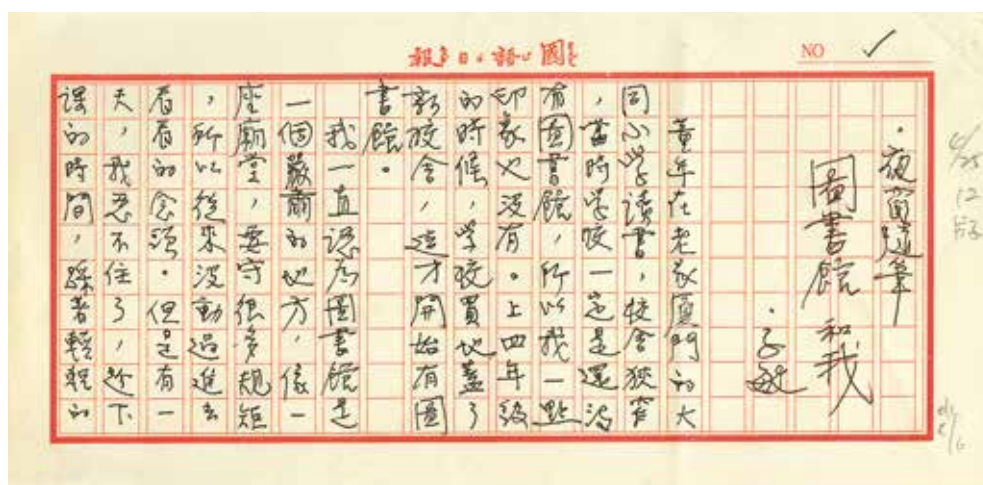 國語日報
NO ✓
4/25
12
·夜窗隨筆
圖書館和我
·子敏
童年在老家廈門的大
同小學讀書,校舍狹窄
,當時學校一定是還沒
有圖書館,所以我一點
印象也沒有。上四年級
的時候,學校買地蓋了
新校舍,這才開始有圖
書館。
我一直認為圖書館是
一個嚴肅的地方,像一
座廟堂,要守很多規矩
,所以從來沒動過進去
看看的念頭。但是有一
天,我忍不住了,趁下
課的時間,踩著輕輕的